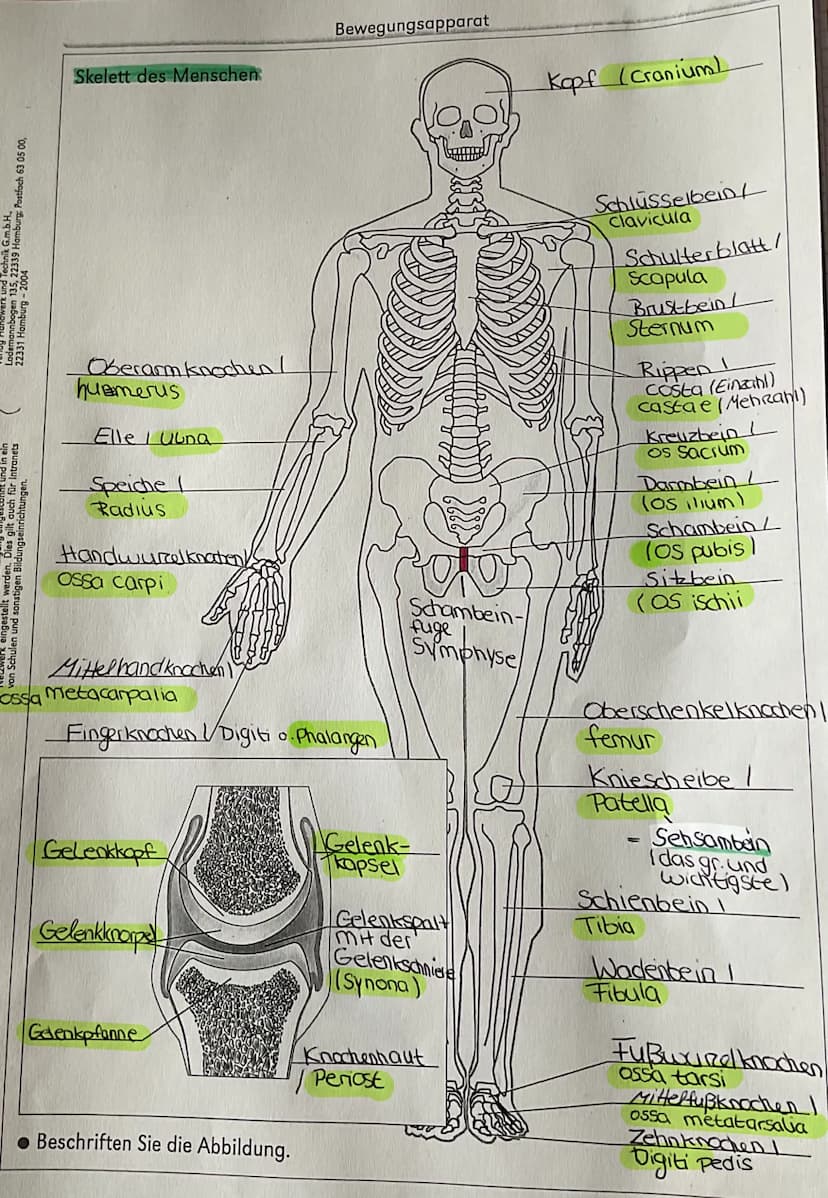 Bewegungsapparat
Skelett des Menschen
Kopf (Cranium)
Schlüsselbein /
clavicula
Schulterblatt /
Scapula
Brustbein /
Sternum
Rippen /
costa (Einzahl)
castae (Mehrzahl)
Kreuzbein /
os sacrum
Darmbein /
(os ilium)
Schambein /
(os pubis)
Sitzbein
(os ischii
Schambein-
fuge
Symphyse
Oberarmknochen /
humerus
Elle / Ulna
Speiche /
Radius
Handwurzelknochen
ossa carpi
Mittelhandknochen /
ossa metacarpalia
Fingerknochen / Digiti o. Phalangen
Oberschenkelknochen /
femur
Kniescheibe /
Patella
= Sehsambein
(das gr. und
wichtigste)
Schienbein /
Tibia
Wadenbein /
Fibula
Fußwurzelknochen
ossa tarsi
Mittelfußknochen /
ossa metatarsalia
Zehnknochen /
Digiti pedis
Gelenkkopf
Gelenkknorpel
Gelenkpfanne
Gelenk-
kapsel
Gelenkspalt
mit der
Gelenkschmiere
(Synona)
Knochenhaut
/ Periost
● Beschriften Sie die Abbildung.
Handwerk und Technik G.m.b.H.,
Lademannbogen 135, 22339 Hamburg; Postfach 63 05 00,
22331 Hamburg – 2004
eingescannt und in ein
Netzwerk eingestellt werden. Dies gilt auch für Intranets
von Schulen und sonstigen Bildungseinrichtungen.